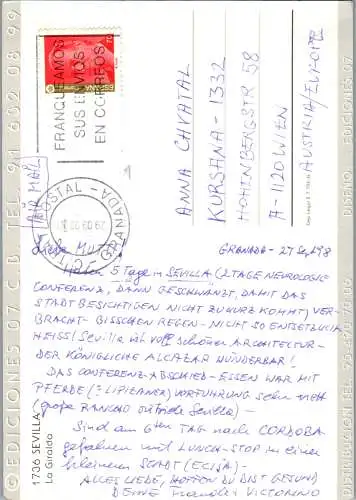 © EDICIONES 07 C.B. TEL. 91 602 08 99
FRANQUEAMOS
SUS ENVIOS
EN CORREOS
AIR MAIL
POSTAL - GRANADA -
ANNA CHVATAL
KURSANA - 1332
HOHENBERGSTR 58
A-1120 WIEN
AUSTRIA/EUROPE
1736 SEVILLA
La Giralda
GRANADA - 27 Sept 98
Liebe MUTZ
Haben 5 Tage in SEVILLA (2 TAGE NEUROLOGIE
CONFERENZ, DANN GESCHWÄNZT, DAMIT DAS
STADTBESICHTIGEN NICHT ZU KURZ KOMMT) VER-
BRACHT - BISSCHEN REGEN - NICHT SO ENTSETZLICH
HEISS! Sevilla ist voll schöner ARCHITEKTUR -
DER KÖNIGLICHE ALCAZAR WUNDERBAR!
DAS CONFERENZ-ABSCHIED-ESSEN WAR MIT
PFERDE (= LIPIZANER) VORFÜHRUNG sehr nett
(große RANCHO outside Sevilla) -
Sind am 6ten TAG nach CORDOBA
gefahren mit LUNCH-STOP in einer
kleineren STADT (ECIJA) -
ALLES LIEBE, HOFFEN DU BIST GESUND
DEINE